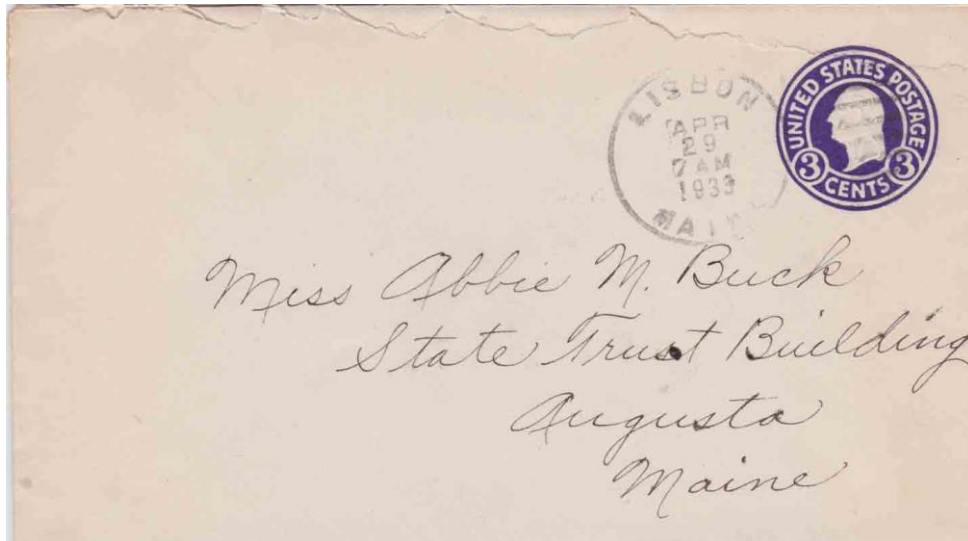 LISBON
APR
29
7 AM
1933
UNITED STATES POSTAGE
3 CENTS 3
Miss Abbie M. Buck
State Trust Building
Augusta
Maine